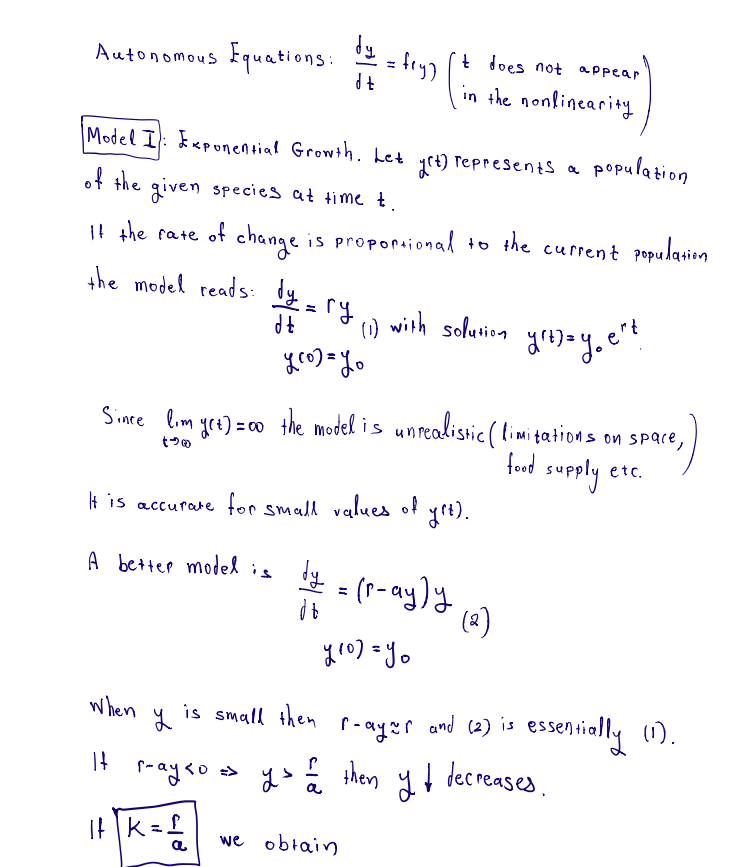 Autonomous Equations: dy/dt = f(y) (t does not appear
in the nonlinearity)
Model I: Exponential Growth. Let y(t) represents a population
of the given species at time t.
If the rate of change is proportional to the current population
the model reads: dy/dt = ry (1) with solution y(t)=y₀e^rt.
y(0)=y₀
Since lim t→∞ y(t)=∞ the model is unrealistic (limitations on space,
food supply etc.)
It is accurate for small values of y(t).
A better model is dy/dt = (r-ay)y (2)
y(0)=y₀
When y is small then r-ay≈r and (2) is essentially (1).
If r-ay<0 => y > r/a then y ↓ decreases.
If K = r/a we obtain